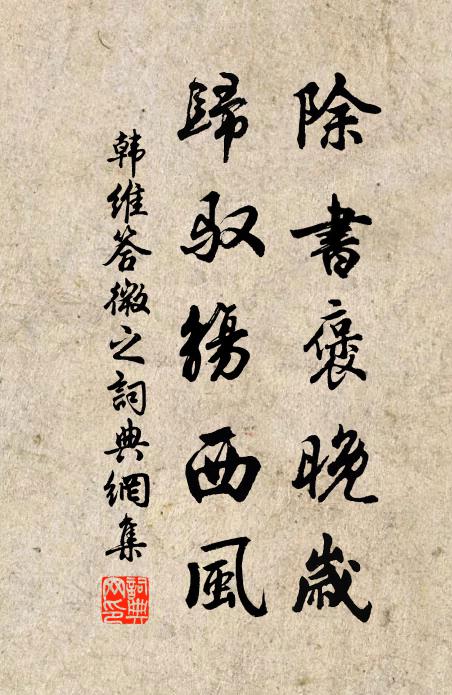 除書褒晚歲
歸馭西風
韩维答微之詞典網集
詞典网印